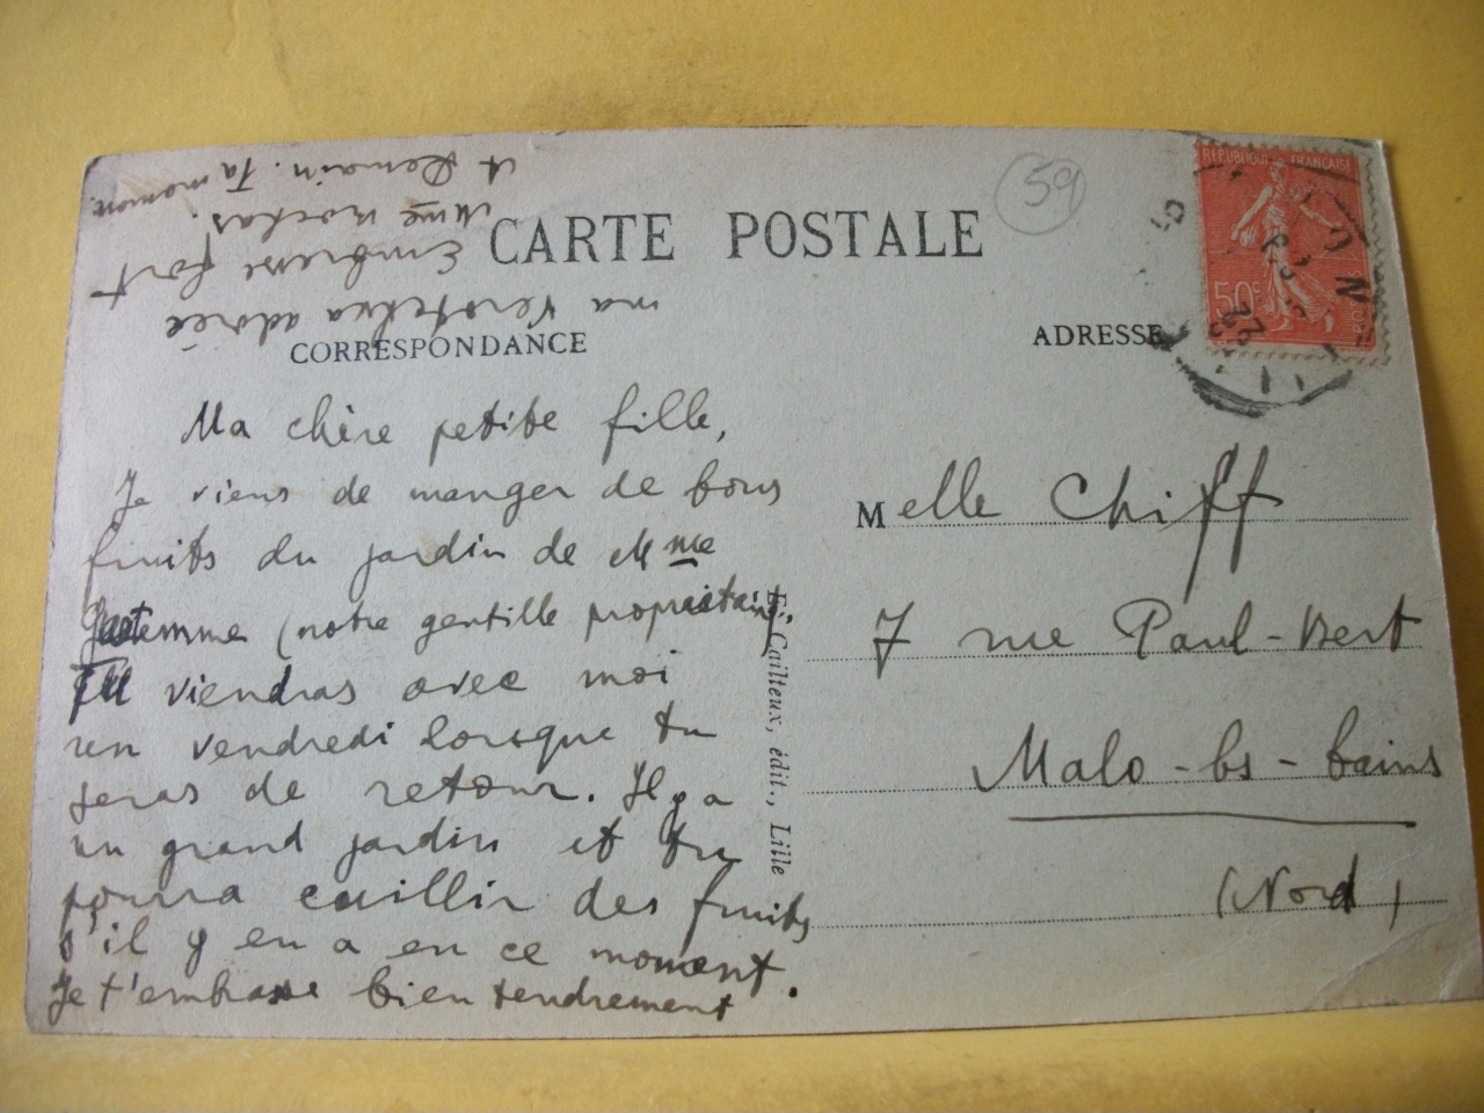 CARTE POSTALE
59
REPUBLIQUE FRANÇAISE
50c
CORRESPONDANCE
ADRESSE
Ma chère petite fille,
Je viens de manger de bons
fruits du jardin de Mme
(notre gentille propriétaire,
Tu viendras avec moi
un vendredi lorsque tu
seras de retour. Il y a
un grand jardin et tu
pourra cuillir des fruits
s'il y en a en ce moment.
Je t'embrasse bien tendrement
ma adorée
Embrasse fort
Mme
A Demain. Ta maman.
Melle Chiff
7 rue Paul-Bert
Malo-bs-bains
(Nord)
E. Cailteux, édit., Lille